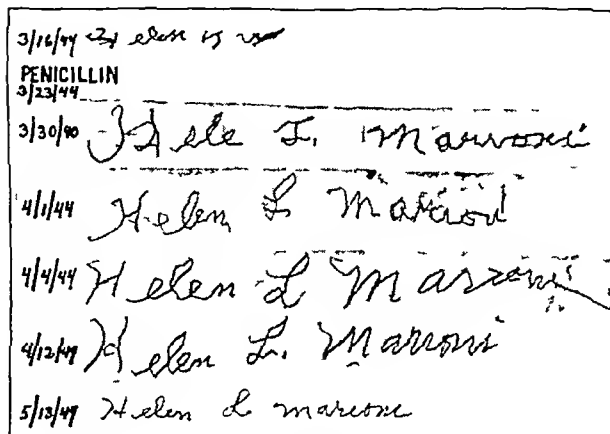 3/16/44 Helen
PENICILLIN
3/23/44
3/30/40 Hele L. Marvoni
4/1/44 Helen L Marioni
4/4/44 Helen L Marzoni
4/12/44 Helen L. Marroni
5/13/44 Helen L marconi